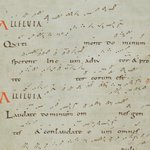 ALLELUIA
Qui ti mone do minum
sperent in eum adiu tor & pro
tec tor eorum est
ALLELUIA
Laudate dominum om nes gen
tes & conlaudate e um omnes